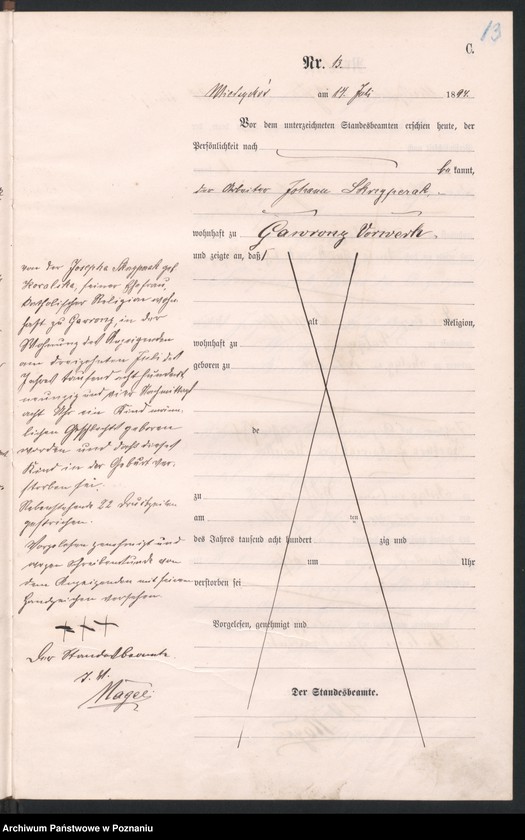 13
C.
Nr. 13.
am 14. Juli 1894.
Vor dem unterzeichneten Standesbeamten erschien heute, der
Persönlichkeit nach
be kannt,
der Arbeiter Johann
wohnhaft zu Gawronz Vorwerk.
und zeigte an, daß
von der Josepha geb.
seiner Ehefrau,
katholischer Religion wohn-
haft zu Gawronz, in der
Wohnung des Anzeigenden
am dreizehnten Juli des
Jahres tausend acht hundert
neunzig und vier Nachmittags
acht Uhr ein Kind männ-
lichen Geschlechts geboren
worden und daß dieses
Kind in der Geburt ver-
storben sei.
Nebenstehende 22 Druckzeilen
gestrichen.
Vorgelesen genehmigt und
wegen Schreibunkunde von
dem Anzeigenden mit seinem
Handzeichen versehen.
+++
Der Standesbeamte
J. V.
Nagel
alt Religion,
wohnhaft zu
geboren zu
de
zu
am ten
des Jahres tausend acht hundert zig und
um Uhr
verstorben sei
Vorgelesen, genehmigt und
Der Standesbeamte.
Archiwum Państwowe w Poznaniu